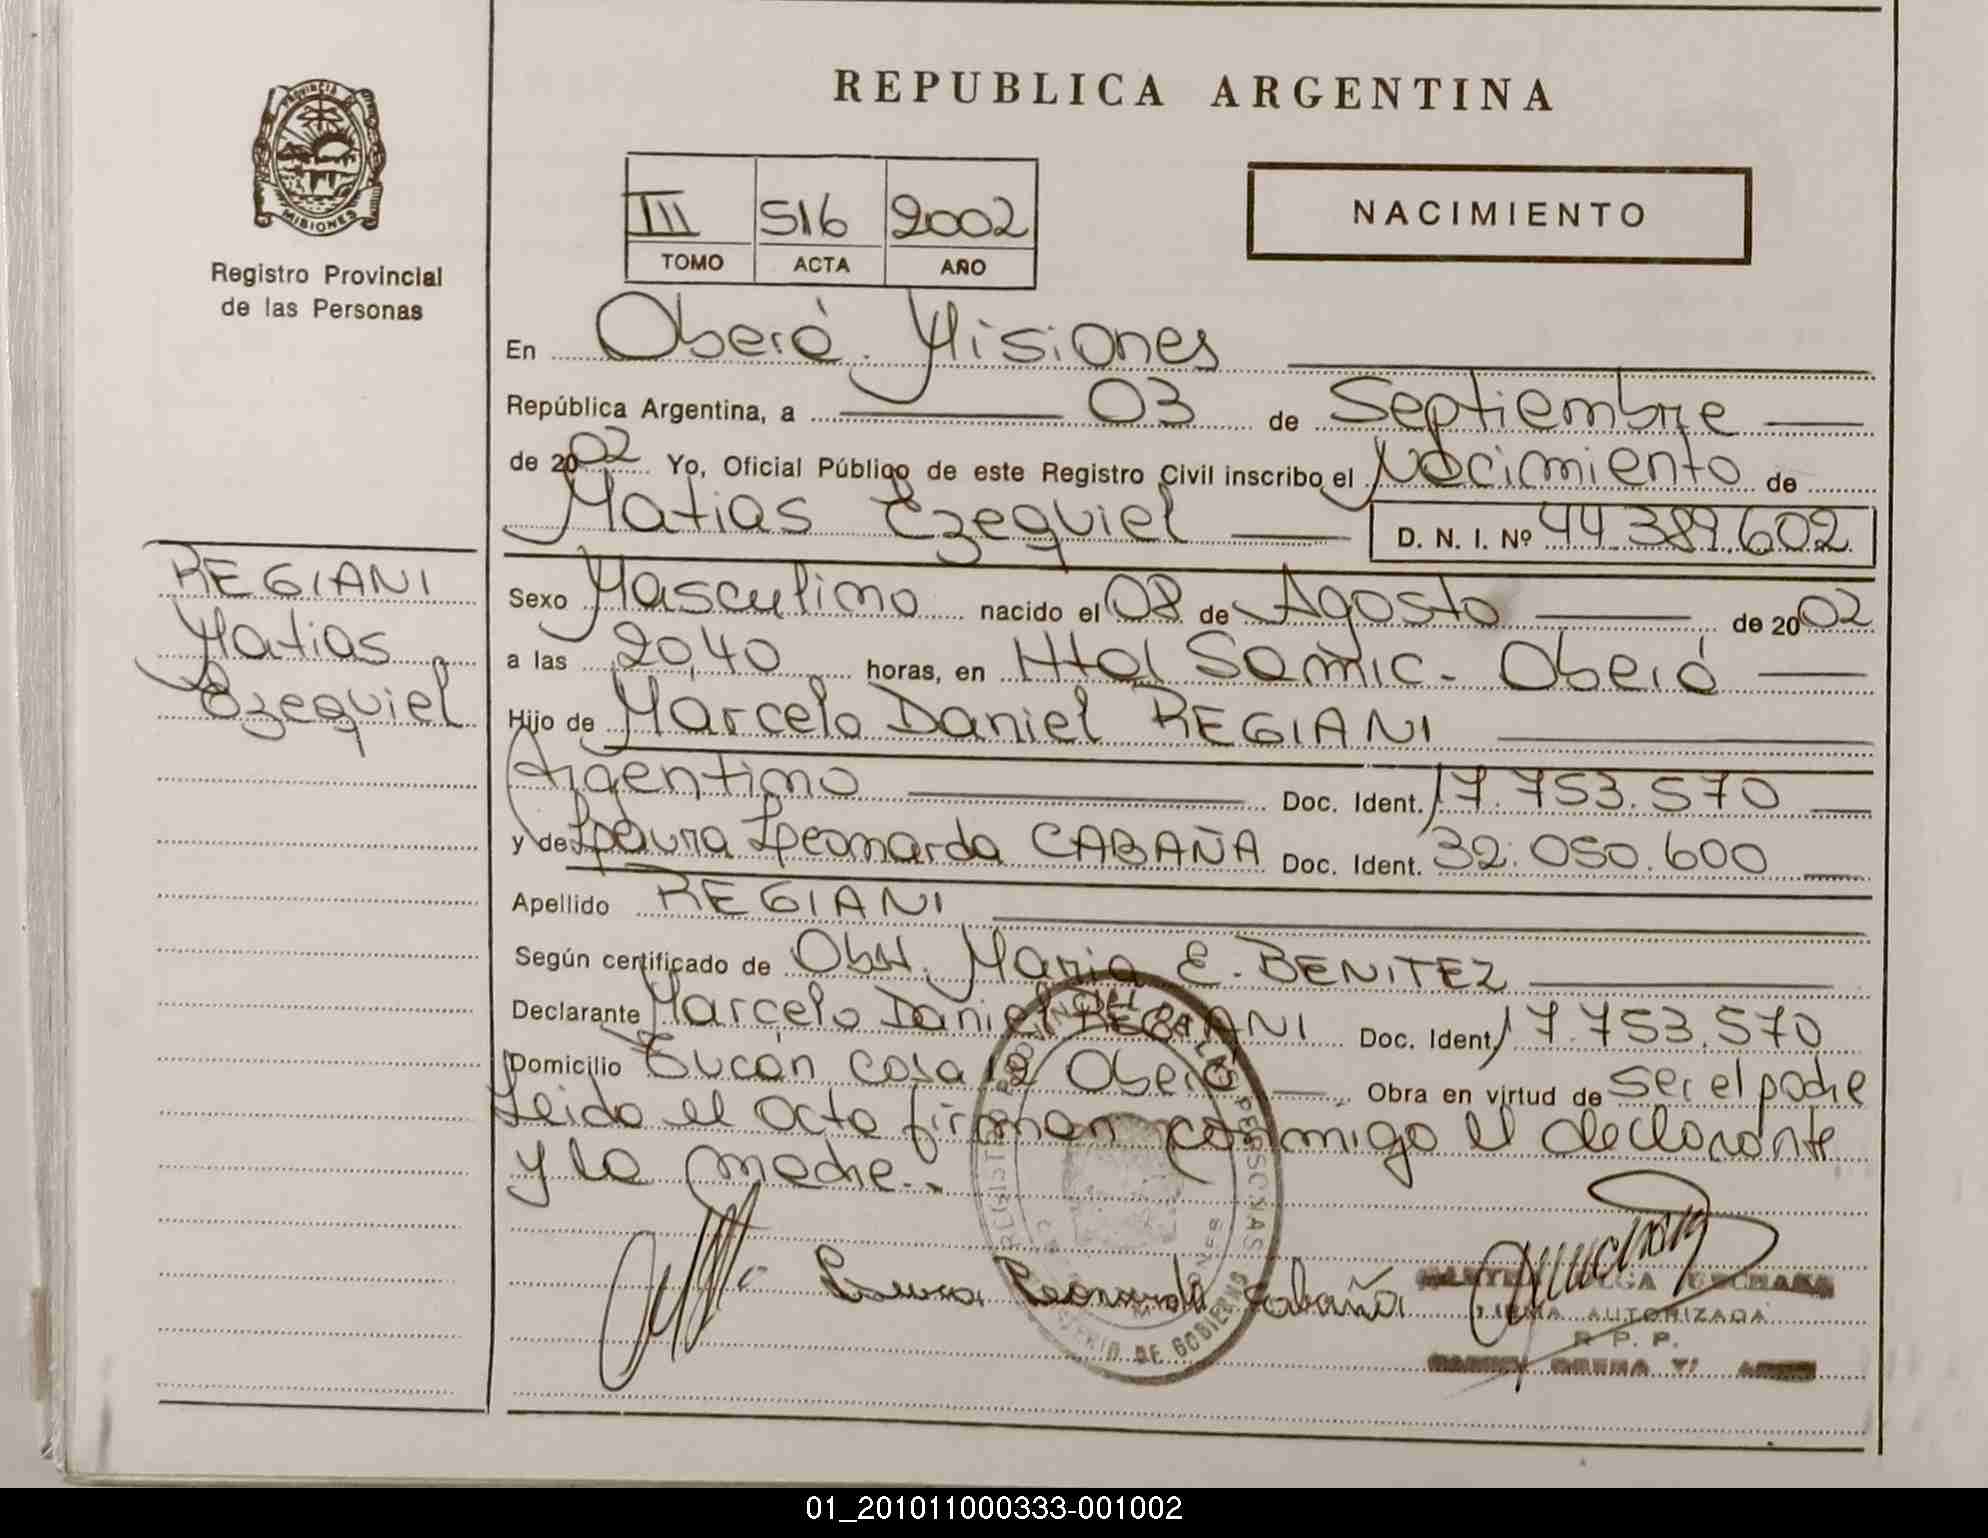 PROVINCIA DE
MISIONES
Registro Provincial
de las Personas
REGIANI
Matias
Ezequiel
REPUBLICA ARGENTINA
III 516 2002
TOMO ACTA AÑO
NACIMIENTO
En Oberá. Misiones
República Argentina, a 03 de Septiembre
de 2002 Yo, Oficial Público de este Registro Civil inscribo el Nacimiento de
Matias Ezequiel D. N. I. Nº 44.389.602
Sexo Masculino nacido el 08 de Agosto de 2002
a las 20,40 horas, en Htal Samic. Oberá
Hijo de Marcelo Daniel REGIANI
Argentino Doc. Ident. 17.753.570
y de Laura Leonarda CABAÑA Doc. Ident. 32.050.600
Apellido REGIANI
Según certificado de Obst. Maria E. BENITEZ
Declarante Marcelo Daniel REGIANI Doc. Ident. 17.753.570
Domicilio Tucán casa 12 Oberá Obra en virtud de ser el padre
Leido el acta firman conmigo el declarante
y la madre.
Laura Leonarda Cabaña
FIRMA AUTORIZADA
R. P. P.
REGISTRO PROVINCIAL DE LAS PERSONAS
DE GOBIERNO
MISIONES
01_201011000333-001002